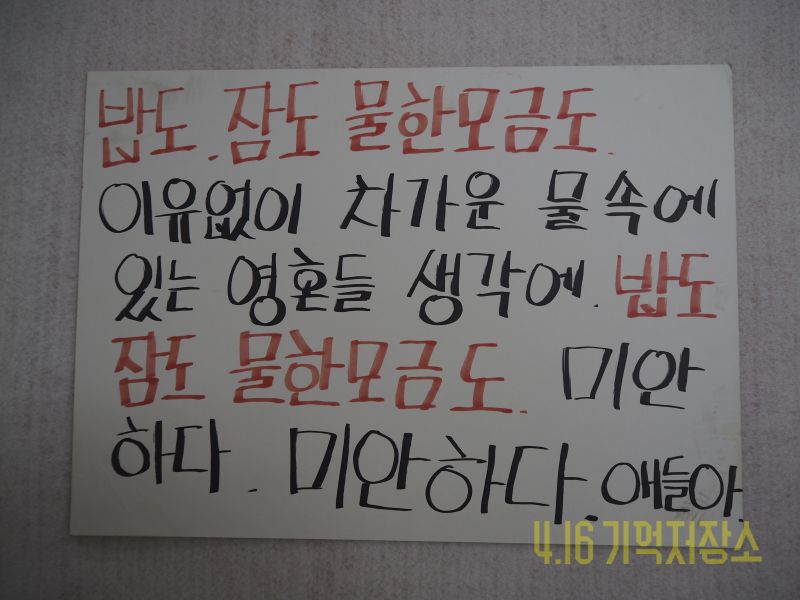 밥도. 잠도 물한모금도.
이유없이 차가운 물속에
있는 영혼들 생각에. 밥도
잠도 물한모금도. 미안
하다. 미안하다. 애들아
4.16 기억저장소